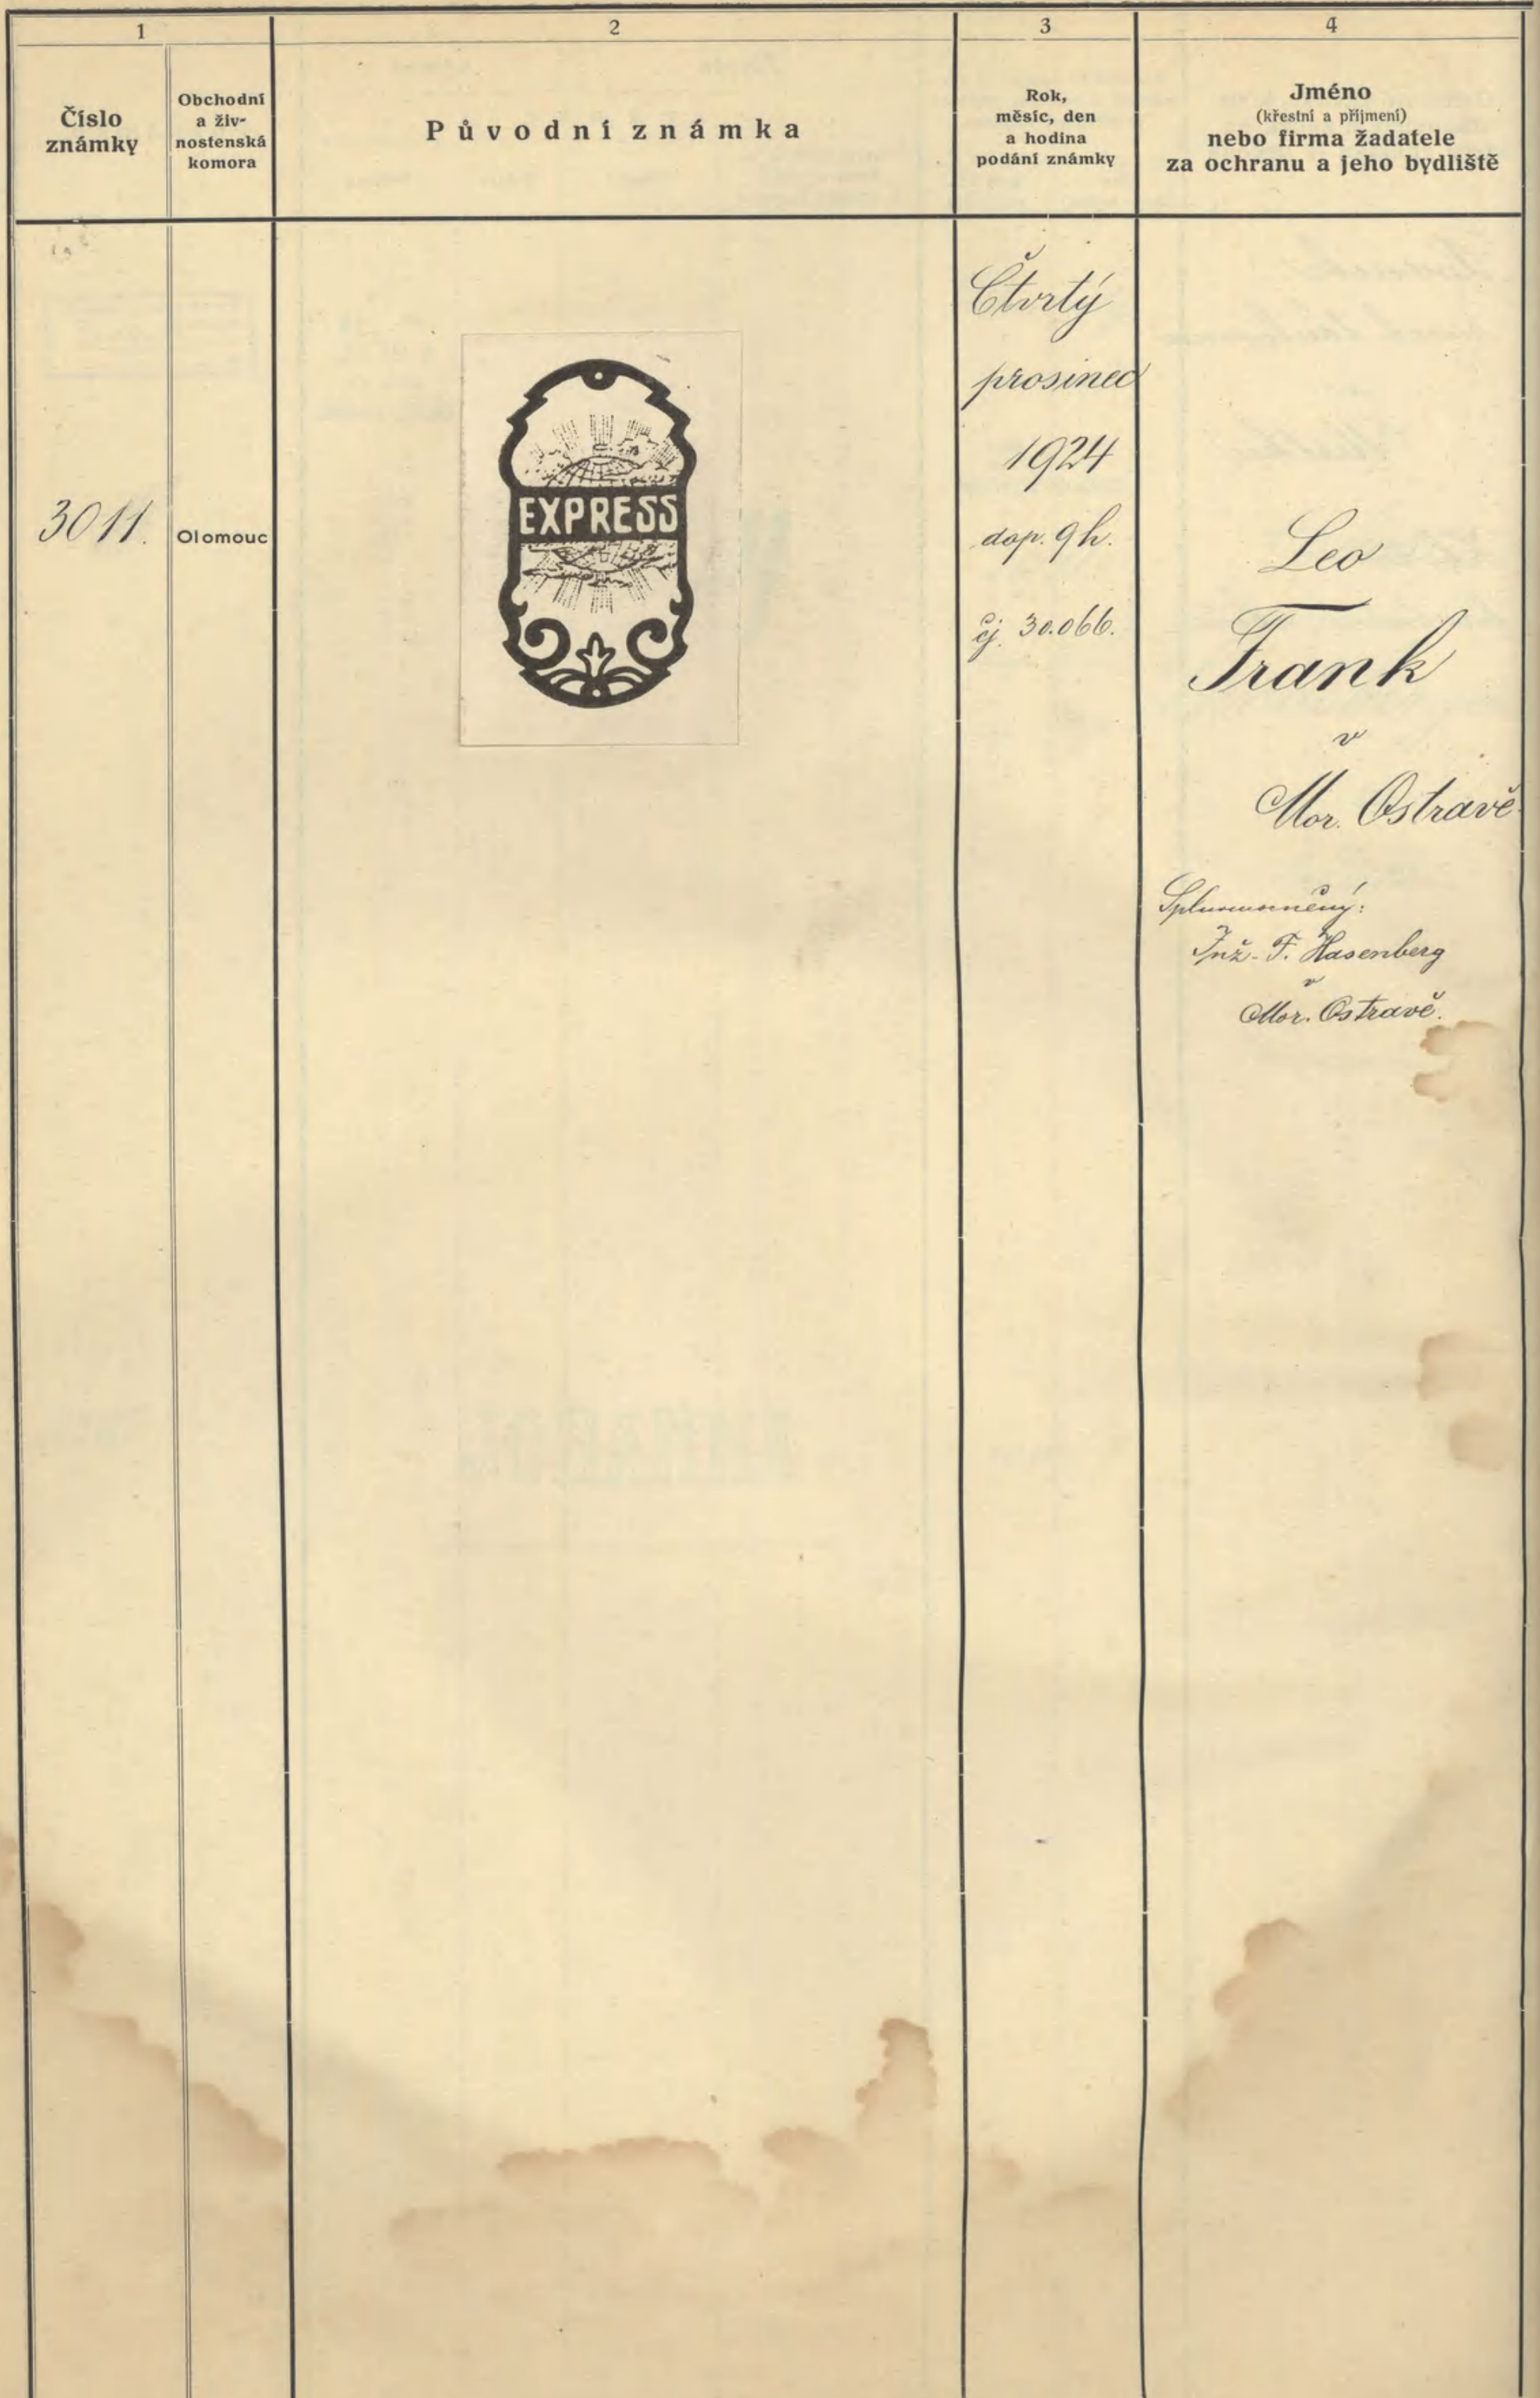 1
2
3
4
Číslo
známky
Obchodní
a živ-
nostenská
komora
Původní známka
Rok,
měsíc, den
a hodina
podání známky
Jméno
(křestní a příjmení)
nebo firma žadatele
za ochranu a jeho bydliště
3011.
Olomouc
EXPRESS
Čtvrtý
prosinec
1924
dop. 9 h.
čj. 30.066.
Leo
Frank
v
Mor. Ostravě
Splnomocněný:
Inž. F. Hasenberg
v
Mor. Ostravě.